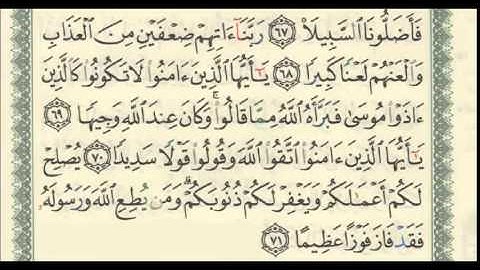 فَأَضَلُّونَا ٱلسَّبِيلَا۠ ٦٧ رَبَّنَآ ءَاتِهِمْ ضِعْفَيْنِ مِنَ ٱلْعَذَابِ
وَٱلْعَنْهُمْ لَعْنًا كَبِيرًا ٦٨ يَـٰٓأَيُّهَا ٱلَّذِينَ ءَامَنُوا۟ لَا تَكُونُوا۟ كَٱلَّذِينَ
ءَاذَوْا۟ مُوسَىٰ فَبَرَّأَهُ ٱللَّهُ مِمَّا قَالُوا۟ ۚ وَكَانَ عِندَ ٱللَّهِ وَجِيهًا ٦٩
يَـٰٓأَيُّهَا ٱلَّذِينَ ءَامَنُوا۟ ٱتَّقُوا۟ ٱللَّهَ وَقُولُوا۟ قَوْلًا سَدِيدًا ٧٠ يُصْلِحْ
لَكُمْ أَعْمَـٰلَكُمْ وَيَغْفِرْ لَكُمْ ذُنُوبَكُمْ ۗ وَمَن يُطِعِ ٱللَّهَ وَرَسُولَهُۥ
فَقَدْ فَازَ فَوْزًا عَظِيمًا ٧١